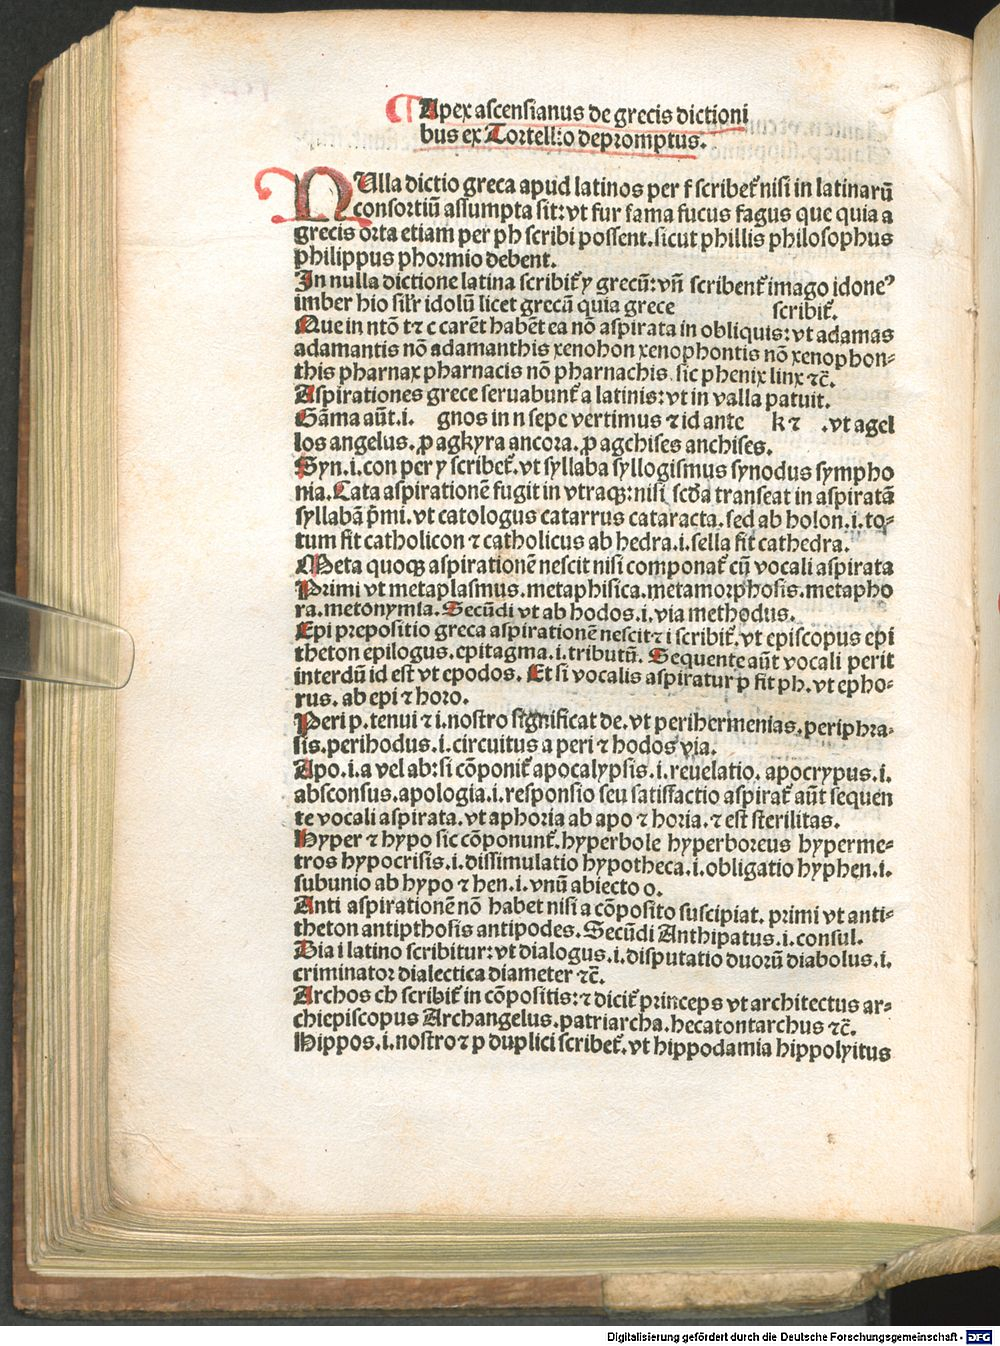 ¶Apex ascensianus de grecis dictioni
bus ex Tortellio depromptus.
NUlla dictio greca apud latinos per f scribet᷑ nisi in latinarū
consortiū assumpta sit: vt fur fama fucus fagus que quia a
grecis orta etiam per ph scribi possent. sicut phillis philosophus
philippus phormio debent.
In nulla dictione latina scribit᷑ y grecū: vñ scribent᷑ imago idoneꝰ
imber hio silr̃ idolū licet grecū quia grece scribit᷑.
Que in ntō t ⁊ c carēt habēt ea nō aspirata in obliquis: vt adamas
adamantis nō adamanthis xenohon xenophontis nō xenophon⸗
this pharnax pharnacis nō pharnachis. sic phenix linx ⁊c̃.
Aspirationes grece seruabunt᷑ a latinis: vt in valla patuit.
Gāma aūt .i. gnos in n sepe vertimus ⁊ id ante k ⁊ . vt agel
los angelus. ꝓ agkyra ancora. ꝓ agchises anchises.
Syn .i. con per y scribet᷑. vt syllaba syllogismus synodus sympho
nia. Cata aspirationē fugit in vtraqꝫ: nisi scd̃a transeat in aspiratā
syllabā p̄mi. vt catologus catarrus cataracta. sed ab holon .i. to⸗
tum fit catholicon ⁊ catholicus ab hedra .i. sella fit cathedra.
Meta quoqꝫ aspirationē nescit nisi componat᷑ cū vocali aspirata
Primi vt metaplasmus. metaphisica. metamorphosis. metapho
ra. metonymia. Secūdi vt ab hodos .i. via methodus.
Epi prepositio greca aspirationē nescit ⁊ i scribit᷑. vt episcopus epi
theton epilogus. epitagma .i. tributū. Sequente aūt vocali perit
interdū id est vt epodos. Et si vocalis aspiratur p fit ph. vt epho⸗
rus. ab epi ⁊ horo.
Peri p. tenui ⁊ i. nostro significat de. vt perihermenias. periphra⸗
sis. perihodus .i. circuitus a peri ⁊ hodos via.
Apo .i. a vel ab: si cōponit᷑ apocalypsis .i. reuelatio. apocrypus .i.
absconsus. apologia .i. responsio seu satisfactio aspirat᷑ aūt sequen
te vocali aspirata. vt aphoria ab apo ⁊ horia. ⁊ est sterilitas.
Hyper ⁊ hypo sic cōponunt᷑. hyperbole hyperboreus hyperme⸗
tros hypocrisis .i. dissimulatio hypotheca .i. obligatio hyphen .i.
subunio ab hypo ⁊ hen .i. vnū abiecto o.
Anti aspirationē nō habet nisi a cōposito suscipiat. primi vt anti⸗
theton antipthosis antipodes. Secūdi Anthipatus .i. consul.
Dia i latino scribitur: vt dialogus .i. disputatio duorū diabolus .i.
criminator dialectica diameter ⁊c̃.
Archos ch scribit᷑ in cōpositis: ⁊ dicit᷑ princeps vt architectus ar⸗
chiepiscopus Archangelus. patriarcha. hecatontarchus ⁊c̃.
Hippos .i. nostro ⁊ p duplici scribet᷑. vt hippodamia hippolyitus
Digitalisierung gefördert durch die Deutsche Forschungsgemeinschaft - DFG